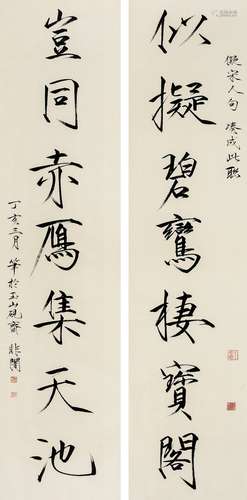 儗宋人句湊成此聯
似擬碧鸞棲寶閣
豈同赤鴈集天池
丁亥三月筆於玉山硯齋非闇